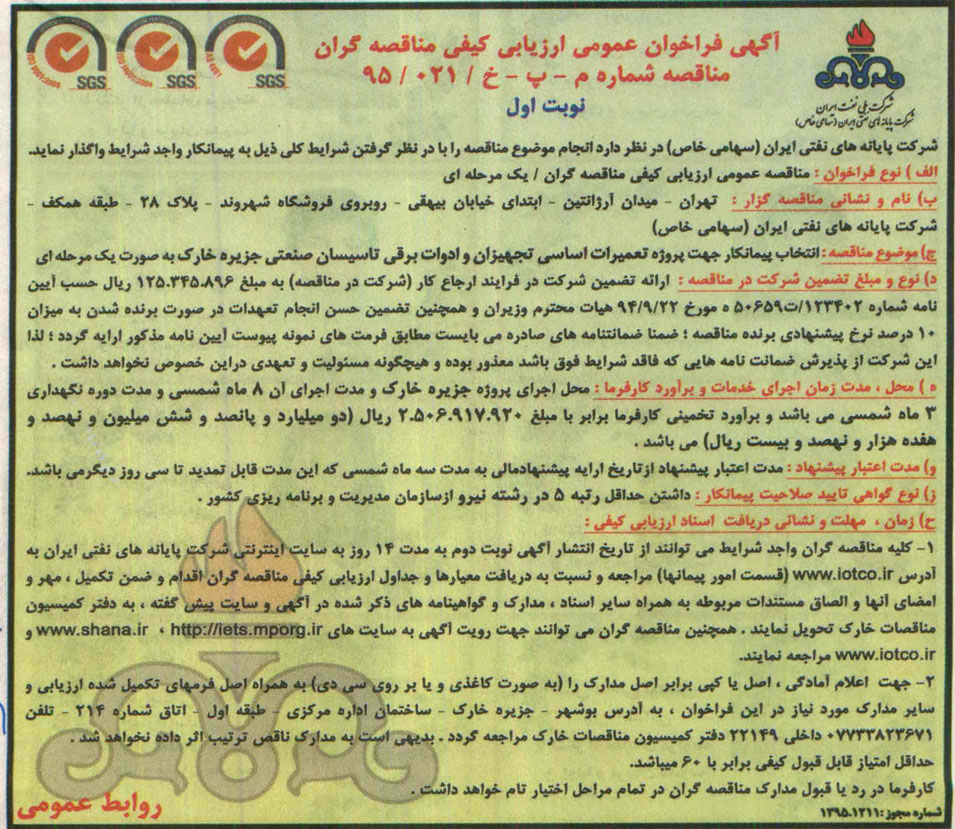 آگهی فراخوان عمومی ارزیابی کیفی مناقصه گران
مناقصه شماره م - پ - خ / ۰۲۱ / ۹۵
نوبت اول
شرکت ملی نفت ایران
شرکت پایانه های نفتی ایران (سهامی خاص)
SGS
SGS
SGS
شرکت پایانه های نفتی ایران (سهامی خاص) در نظر دارد انجام موضوع مناقصه را با در نظر گرفتن شرایط کلی ذیل به پیمانکار واجد شرایط واگذار نماید.
الف ) نوع فراخوان : مناقصه عمومی ارزیابی کیفی مناقصه گران / یک مرحله ای
ب) نام و نشانی مناقصه گزار : تهران - میدان آرژانتین - ابتدای خیابان بیهقی - روبروی فروشگاه شهروند - پلاک ۲۸ - طبقه همکف -
شرکت پایانه های نفتی ایران (سهامی خاص)
ج) موضوع مناقصه : انتخاب پیمانکار جهت پروژه تعمیرات اساسی تجهیزان و ادوات برقی تاسیسان صنعتی جزیره خارک به صورت یک مرحله ای
د) نوع و مبلغ تضمین شرکت در مناقصه : ارائه تضمین شرکت در فرایند ارجاع کار (شرکت در مناقصه) به مبلغ ۱۲۵.۳۴۵.۸۹۶ ریال حسب آیین
نامه شماره ۱۲۳۴۰۲/ت۵۰۶۵۹ ه مورخ ۹۴/۹/۲۲ هیات محترم وزیران و همچنین تضمین حسن انجام تعهدات در صورت برنده شدن به میزان
۱۰ درصد نرخ پیشنهادی برنده مناقصه ؛ ضمنا ضمانتنامه های صادره می بایست مطابق فرمت های نمونه پیوست آیین نامه مذکور ارایه گردد ؛ لذا
این شرکت از پذیرش ضمانت نامه هایی که فاقد شرایط فوق باشد معذور بوده و هیچگونه مسئولیت و تعهدی دراین خصوص نخواهد داشت .
ه ) محل ، مدت زمان اجرای خدمات و برآورد کارفرما : محل اجرای پروژه جزیره خارک و مدت اجرای آن ۸ ماه شمسی و مدت دوره نگهداری
۳ ماه شمسی می باشد و برآورد تخمینی کارفرما برابر با مبلغ ۲.۵۰۶.۹۱۷.۹۲۰ ریال (دو میلیارد و پانصد و شش میلیون و نهصد و
هفده هزار و نهصد و بیست ریال) می باشد .
و) مدت اعتبار پیشنهاد : مدت اعتبار پیشنهاد ازتاریخ ارایه پیشنهادمالی به مدت سه ماه شمسی که این مدت قابل تمدید تا سی روز دیگرمی باشد.
ز) نوع گواهی تایید صلاحیت پیمانکار : داشتن حداقل رتبه ۵ در رشته نیرو ازسازمان مدیریت و برنامه ریزی کشور .
ح) زمان ، مهلت و نشانی دریافت اسناد ارزیابی کیفی :
۱- کلیه مناقصه گران واجد شرایط می توانند از تاریخ انتشار آگهی نوبت دوم به مدت ۱۴ روز به سایت اینترنتی شرکت پایانه های نفتی ایران به
آدرس www.iotco.ir (قسمت امور پیمانها) مراجعه و نسبت به دریافت معیارها و جداول ارزیابی کیفی مناقصه گران اقدام و ضمن تکمیل ، مهر و
امضای آنها و الصاق مستندات مربوطه به همراه سایر اسناد ، مدارک و گواهینامه های ذکر شده در آگهی و سایت پیش گفته ، به دفتر کمیسیون
مناقصات خارک تحویل نمایند . همچنین مناقصه گران می توانند جهت رویت آگهی به سایت های http://iets.mporg.ir ، www.shana.ir و
www.iotco.ir مراجعه نمایند.
۲- جهت اعلام آمادگی ، اصل یا کپی برابر اصل مدارک را (به صورت کاغذی و یا بر روی سی دی) به همراه اصل فرمهای تکمیل شده ارزیابی و
سایر مدارک مورد نیاز در این فراخوان ، به آدرس بوشهر - جزیره خارک - ساختمان اداره مرکزی - طبقه اول - اتاق شماره ۲۱۴ - تلفن
۰۷۷۳۳۸۲۳۶۷۱ داخلی ۲۲۱۴۹ دفتر کمیسیون مناقصات خارک مراجعه گردد . بدیهی است به مدارک ناقص ترتیب اثر داده نخواهد شد .
حداقل امتیاز قابل قبول کیفی برابر با ۶۰ میباشد.
کارفرما در رد یا قبول مدارک مناقصه گران در تمام مراحل اختیار تام خواهد داشت .
شماره مجوز : ۱۳۹۵.۱۲۱۱
روابط عمومی